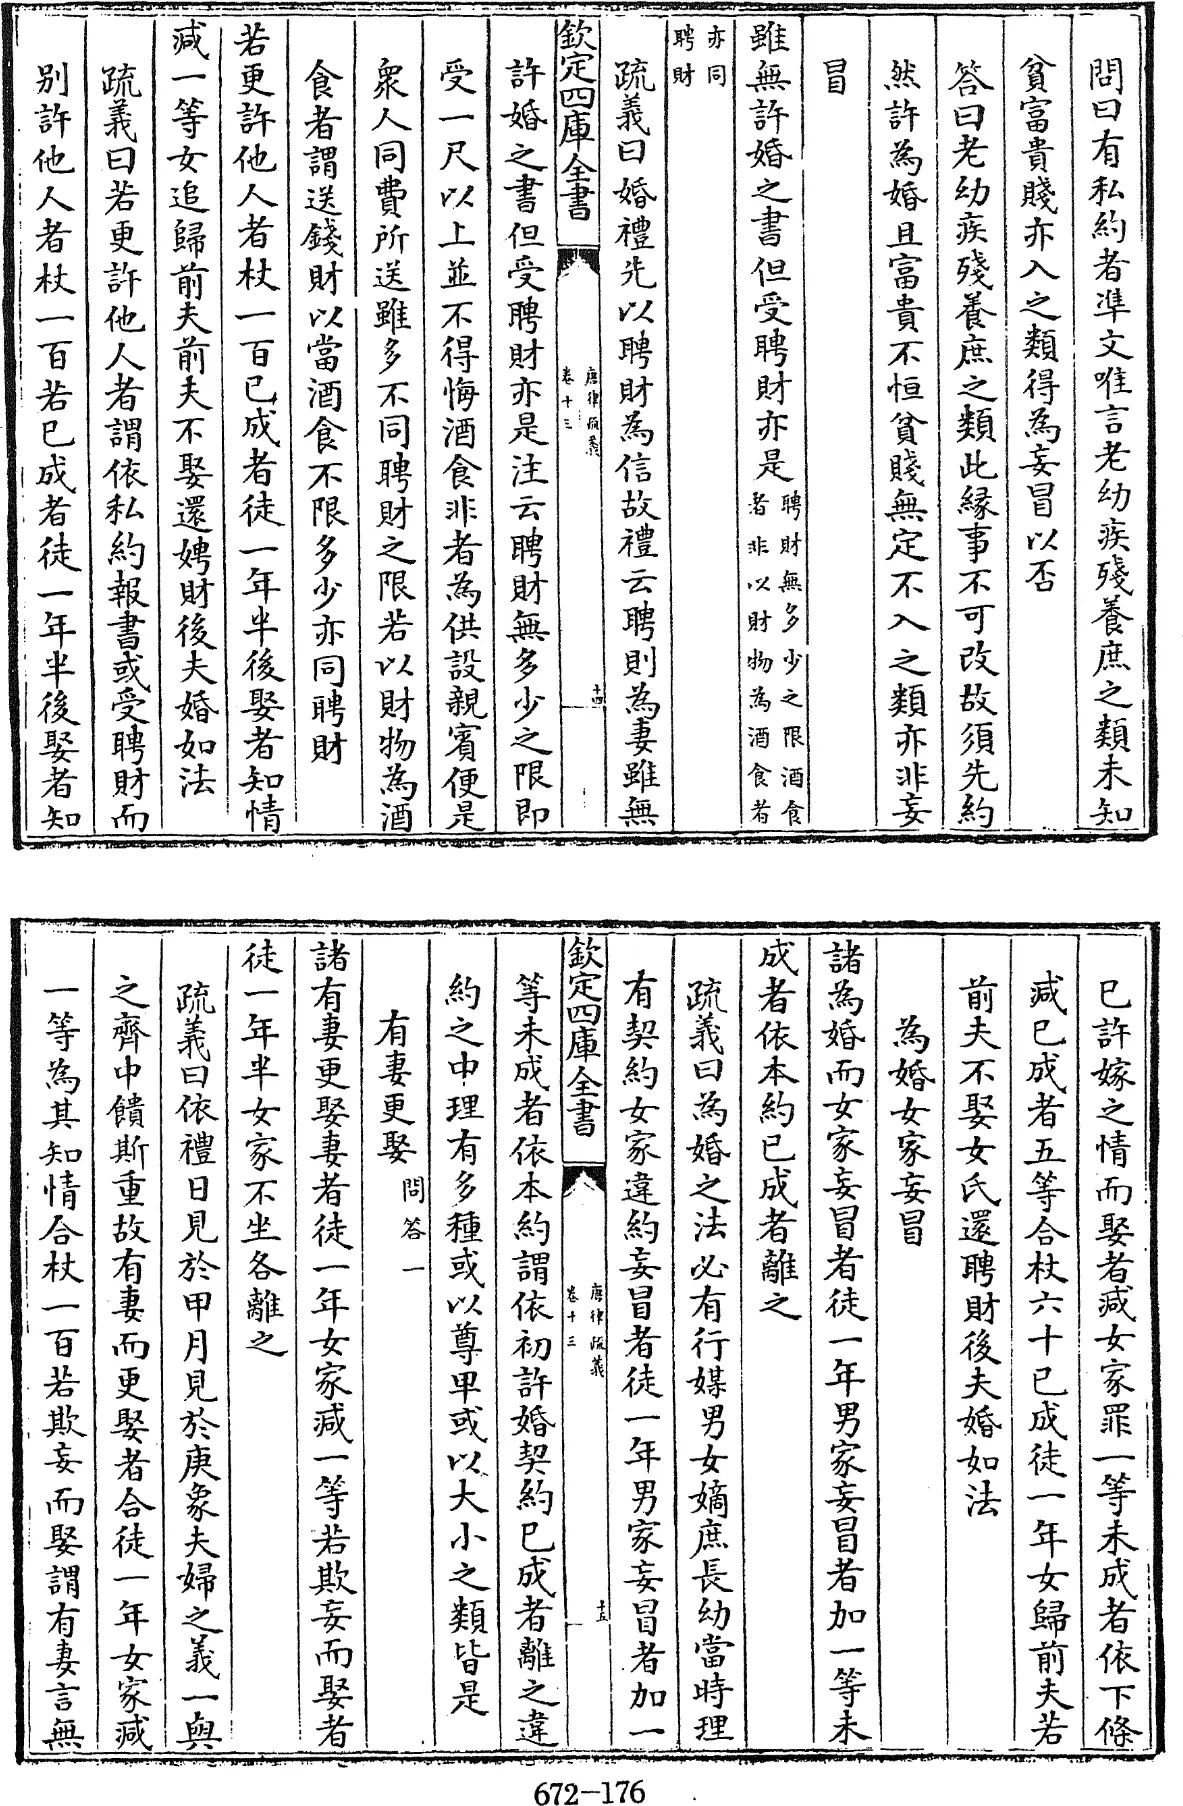 問曰有私約者準文唯言老幼疾殘養庶之類未知
貧富貴賤亦入之類得為妄冒以否
答曰老幼疾殘養庶之類此縁事不可改故須先約
然許為婚且富貴不恒貧賤無定不入之類亦非妄
冒
雖無許婚之書但受聘財亦是聘財無多少之限酒食
者非以財物為酒食者
亦同
聘財
疏義曰婚禮先以聘財為信故禮云聘則為妻雖無
欽定四庫全書
唐律疏義
卷十三
十四
許婚之書但受聘財亦是注云聘財無多少之限即
受一尺以上並不得悔酒食非者為供設親賓便是
衆人同費所送雖多不同聘財之限若以財物為酒
食者謂送錢財以當酒食不限多少亦同聘財
若更許他人者杖一百已成者徒一年半後娶者知情
減一等女追歸前夫前夫不娶還娉財後夫婚如法
疏義曰若更許他人者謂依私約報書或受聘財而
别許他人者杖一百若已成者徒一年半後娶者知
已許嫁之情而娶者減女家罪一等未成者依下條
減已成者五等合杖六十已成徒一年女歸前夫若
前夫不娶女氏還聘財後夫婚如法
為婚女家妄冒
諸為婚而女家妄冒者徒一年男家妄冒者加一等未
成者依本約已成者離之
疏義曰為婚之法必有行媒男女嫡庶長幼當時理
有契約女家違約妄冒者徒一年男家妄冒者加一
欽定四庫全書
唐律疏義
卷十三
十五
等未成者依本約謂依初許婚契約已成者離之違
約之中理有多種或以尊卑或以大小之類皆是
有妻更娶 問答一
諸有妻更娶妻者徒一年女家減一等若欺妄而娶者
徒一年半女家不坐各離之
疏義曰依禮日見於甲月見於庚象夫婦之義一與
之齊中饋斯重故有妻而更娶者合徒一年女家減
一等為其知情合杖一百若欺妄而娶謂有妻言無
672-176